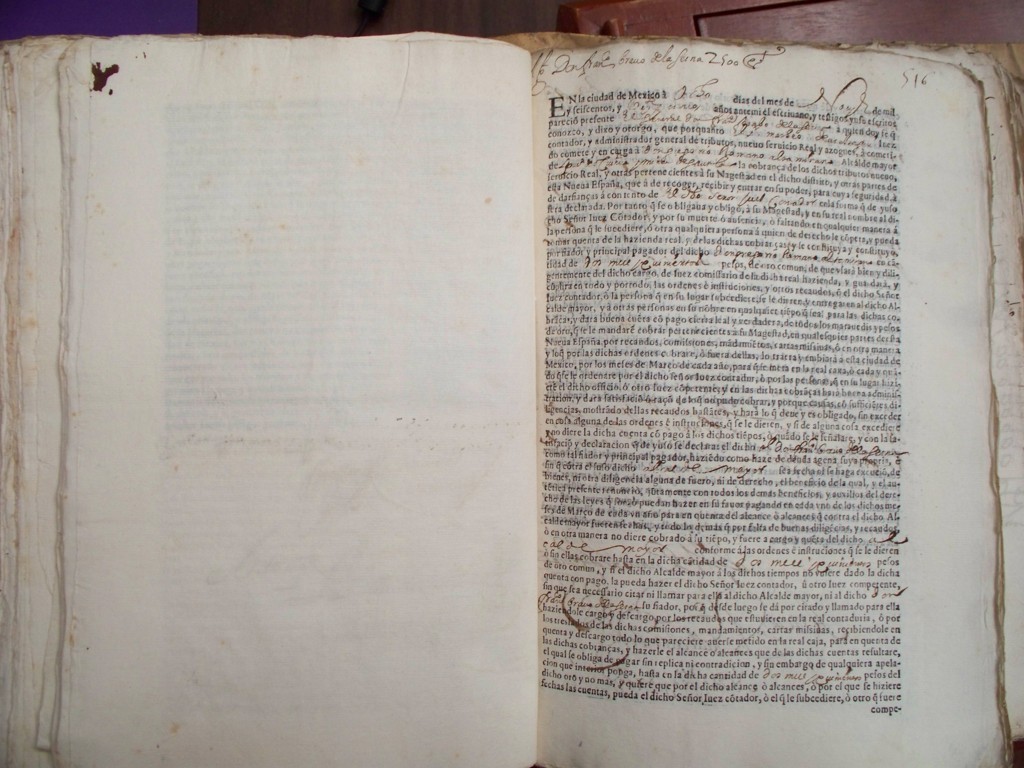 Don brauo de la serna 2500
516
EN la ciudad de Mexico à ocho dias del mes de de mil
y seiscentos, y años ante mi el escriuano, y testigos yuso escritos
pareció presente à quien doy fe q̃
conozco, y dixo y otorgo, que por quanto juez
contador, y administrador general de tributos, nueuo seruicio Real y azogues, à cometi-
do comete y en carga à Alcalde mayor
de la cobrança de los dichos tributos nueuo,
seruicio Real, y otras pertenecientes à su Magestad en el dicho distrito, y otras partes de
esta Nueua España, que à de recoger, recibir y entrar en su poder, para cuya seguridad à
de dar fianças à contento de en la forma q̃ de yuso
sera declarada. Por tanto q̃ se obligaua y obligò, à su Magestad, y en su real nombre al di-
cho Señor Iuez Cõtador, y por su muerte ò ausencia, ò faltando en qualquier manera à
la persona q̃ le sucediere, ò otra qualquiera persona à quien de derecho le cõpeta, y pueda
tomar quenta de la hazienda real, y de las dichas cobranças, y se constituya y constituyò,
por fiador y principal pagador del dicho en cã-
tidad de dos mil y quinientos pesos, de oro comun, de que vsarà bien y dili-
gentemente del dicho cargo, de Iuez comissario de la dicha real hazienda, y guardarà, y
cũplirà en todo y por todo, las ordenes è instruciones, y otros recaudos, q̃ el dicho Señor
Iuez contador, ò la persona q̃ en su lugar subcediere, se le dieren, y entregaren al dicho Al-
calde mayor, y à otras personas en su nõbre en qualquier tiẽpo q̃ sea, para las dichas co-
brãças, y dara buena cuẽta cõ pago cierta leal y verdadera, de todos los marauedis y pesos
de oro, q̃ se le mandarẽ cobrar pertenecientes à su Magestad, en qualesquier partes desta
Nueua España, por recaudos, comissiones, mãdamiẽtos, cartas missiuas, ò en otra manera
y lo q̃ por las dichas ordenes cobrare, ò fuera dellas, lo traera y embiarà à esta ciudad de
Mexico, por los meses de Março de cada año, para q̃ se meta en la real caxa, ò cada y quã-
do q̃ se le ordenare por el dicho señor Iuez contador, ò por las personas, q̃ en su lugar hizie-
re el dicho officio, ò otro Iuez cõpetente, y en las dichas cobrãças harà buena adminis-
tracion, y darà satisfació ò raçõ de lo q̃ no pudo cobrar, y porque causas, cõ suficiẽtes di-
ligencias, mostrado dellas recaudos bastãtes, y harà lo q̃ deue y es obligado, sin exceder
en cosa alguna de las ordenes è instruciones, q̃ se le dieren, y si de alguna cosa excediere
y no diere la dicha cuenta cõ pago à los dichos tiẽpos, ò quãdo se le señalare, y con la sa-
tisfació y declaracion q̃ de yuso se declara; el dicho
como tal fiador y principal pagador, haziẽdo como haze de deuda agena suya propria, è
sin q̃ cõtra el suso dicho alcalde mayor sea fecha ni se haga excució, de
bienes, ni otra diligencia alguna de fuero, ni de derecho, el beneficio de la qual, y el au-
tẽtica presente renunciò, jũtamente con todos los demas beneficios, y auxilios del dere-
cho de las leyes q̃ son, ò puedan hazer en su fauor pagando en cada vno de los dichos me-
ses de Março de cada vn año para en quenta del alcance ò alcances q̃ contra el dicho Al-
calde mayor fueren fechos, y todo lo demàs q̃ por falta de buenas diligẽcias, y recaudos,
ò en otra manera no diere cobrado à su tiẽpo, y fuere à cargo y quẽta del dicho al
calde mayor conforme à las ordenes è instruciones q̃ se le dieren
ò sin ellas cobrare hasta en la dicha cãtidad de dos mil y quinientos pesos
de oro comun, y si el dicho Alcalde mayor à los dichos tiempos no vuiere dado la dicha
quenta con pago, la pueda hazer el dicho Señor Iuez contador, ù otro Iuez competente,
sin que sea necessario citar ni llamar para ella al dicho Alcalde mayor, ni al dicho don
su fiador, porq̃ desde luego se dà por citado y llamado para ella
haziendole cargo y descargo por los recaudos que estuuieren en la real contaduria, ò por
los treslados de las dichas comissiones, mandamientos, cartas missiuas, recibiendole en
quenta y descargo todo lo que pareciere auerse metido en la real caxa, para en quenta de
las dichas cobranças, y hazerle el alcance ò alcances que de las dichas cuentas resultare,
el qual se obliga de pagar sin replica ni contradicion, y sin embargo de qualquiera apela-
cion que interpor ponga, hasta en la dicha cantidad de dos mil y quinientos pesos del
dicho oro y no mas, y quiere que por el dicho alcance ò alcances, ò por el que se hiziere
fechas las cuentas, pueda el dicho Señor Iuez cõtador, ò el q̃ le subcediere, ò otro q̃ fuere
compe-